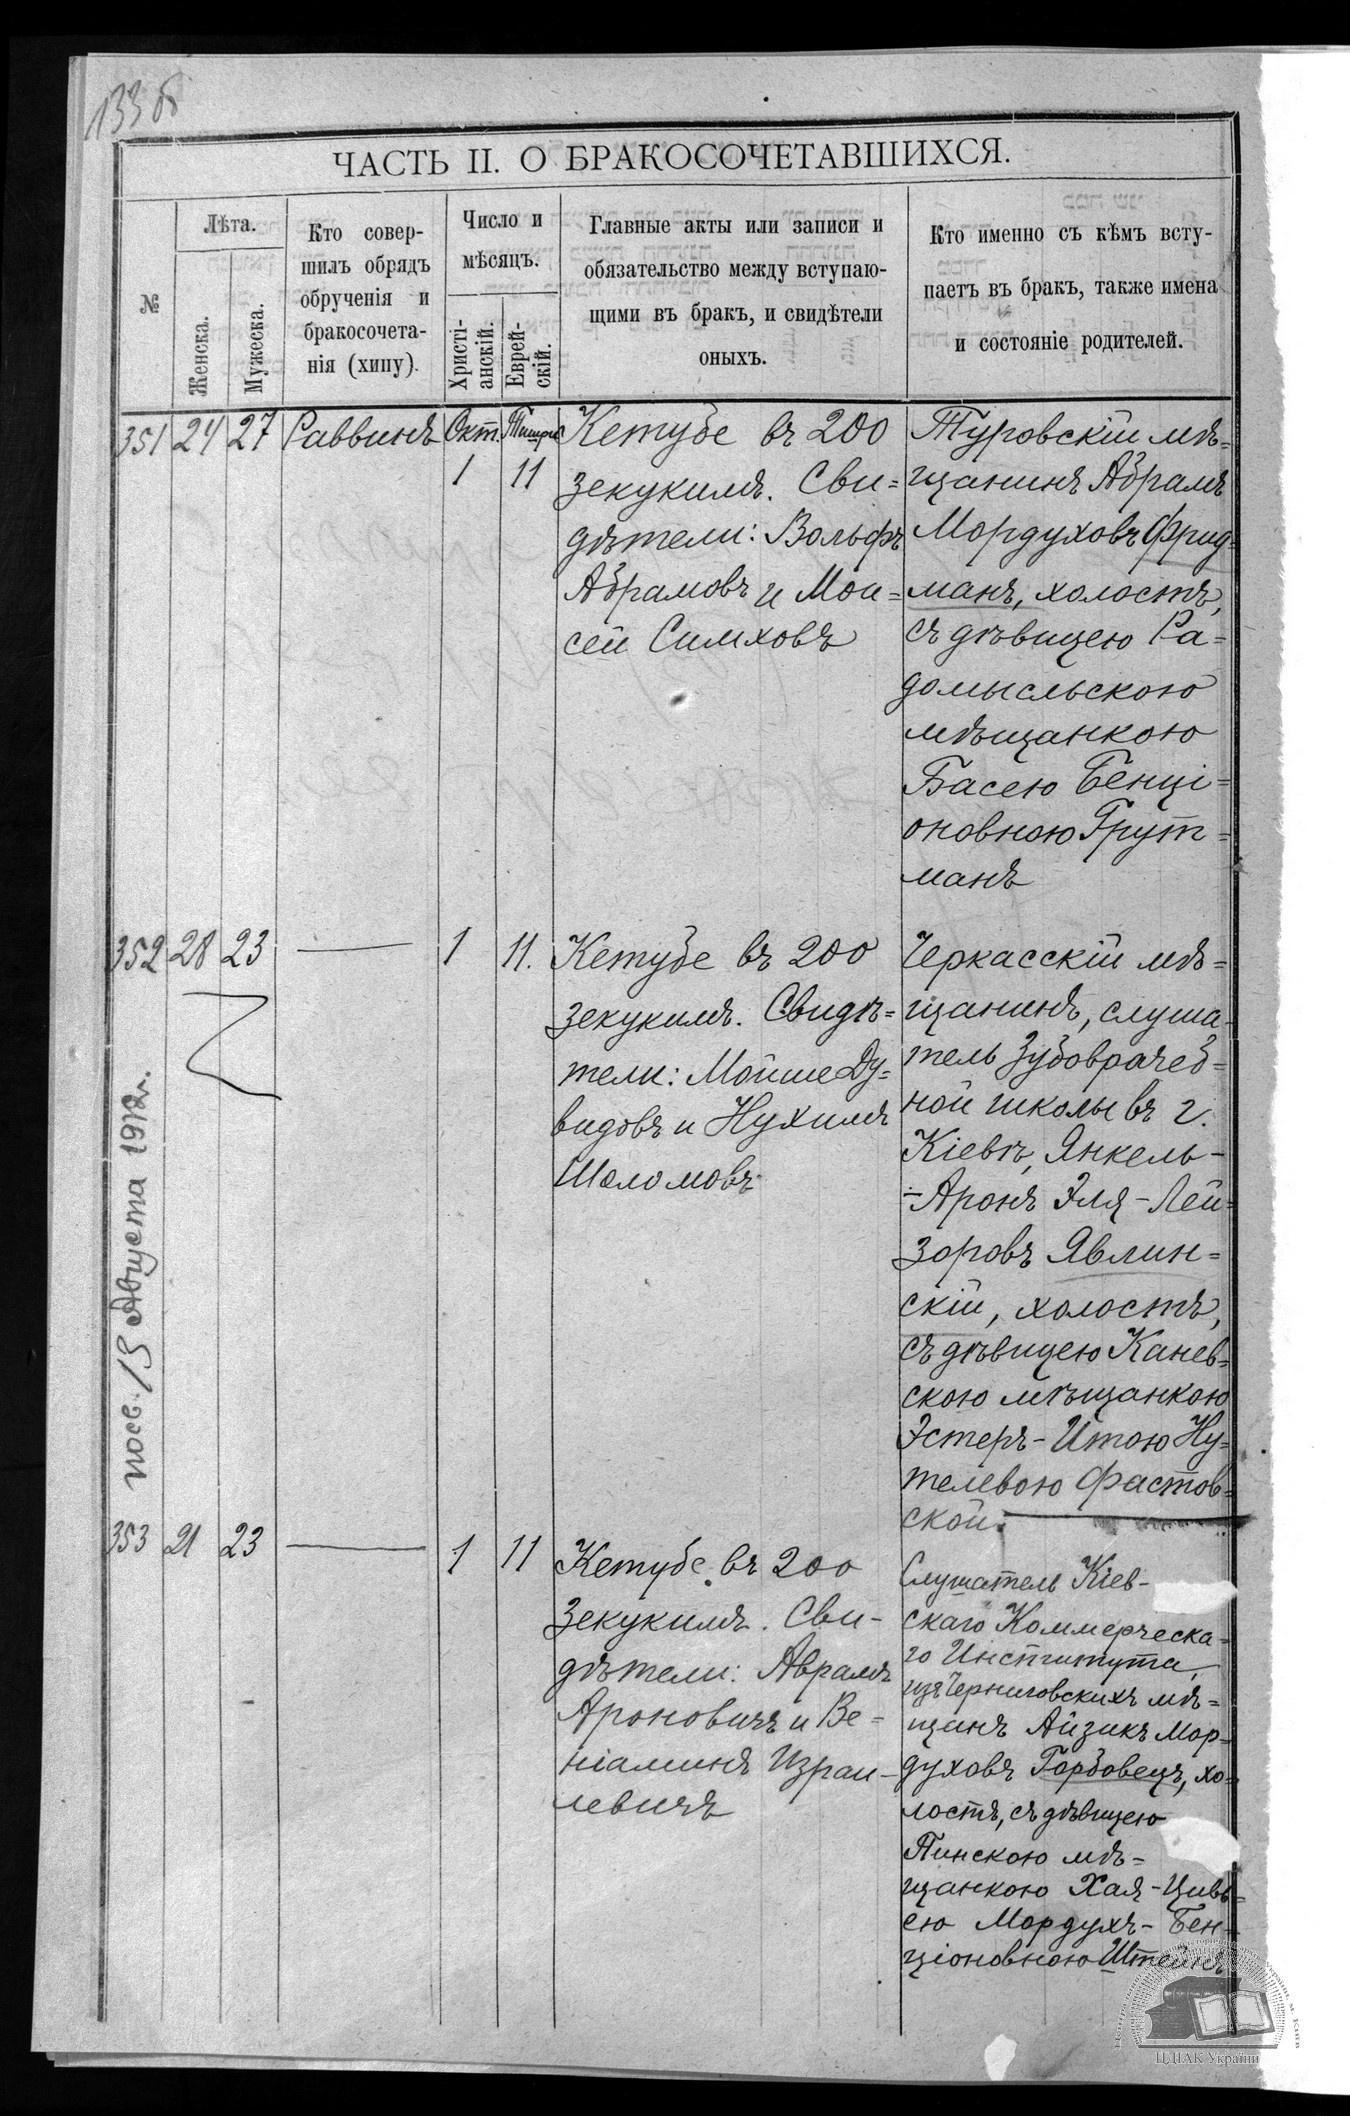 133 б
ЧАСТЬ II. О БРАКОСОЧЕТАВШИХСЯ.
№
Лѣта.
Женска.
Мужеска.
Кто совер-
шилъ обрядъ
обрученія и
бракосочета-
нія (хипу).
Число и
мѣсяцъ.
Христі-
анскій.
Еврей-
скій.
Главные акты или записи и
обязательство между вступаю-
щими въ бракъ, и свидѣтели
оныхъ.
Кто именно съ кѣмъ всту-
паетъ въ бракъ, также имена
и состояніе родителей.
351 24 27 Раввинъ Окт. Тишри
1 11
Кетубе въ 200
зекукимъ. Сви=
дѣтели: Вольфъ
Абрамовъ и Мои=
сей Симховъ
Туровскій мѣ=
щанинъ Абрамъ
Мордуховъ Фрид=
манъ, холостъ,
съ дѣвицею Ра=
домысльскою
мѣщанкою
Басею Бенці=
оновною Грут=
манъ
352 28 23 — 1 11.
Кетубе въ 200
зекукимъ. Свидѣ=
тели: Мойше Ду=
видовъ и Нухимъ
Шоломовъ
Черкасскій мѣ=
щанинъ, слуша=
тель Зубоврачеб=
ной школы въ г.
Кіевѣ, Янкель-
-Аронъ Эля-Лей=
зоровъ Явлин=
скій, холостъ,
съ дѣвицею Канев=
скою мѣщанкою
Эстеръ-Итою Ну=
телевою Фастов=
ской.
посв. 15 Августа 1912г.
353 21 23 — 1 11
Кетубе въ 200
Зекукимъ. Сви-
дѣтели: Аврамъ
Ароновичъ и Ве=
ніаминъ Израи-
левичъ
Слушатель Кіев-
скаго Коммерческа=
го Института,
изъ Черниговскихъ мѣ=
щанъ Айзикъ Мор=
духовъ Горбовецъ, хо=
лостъ, съ дѣвицею
Пинскою мѣ=
щанкою Хая-Цивь=
ею Мордухъ-Бен-
ціоновною Штейнъ
ЦДІАК України